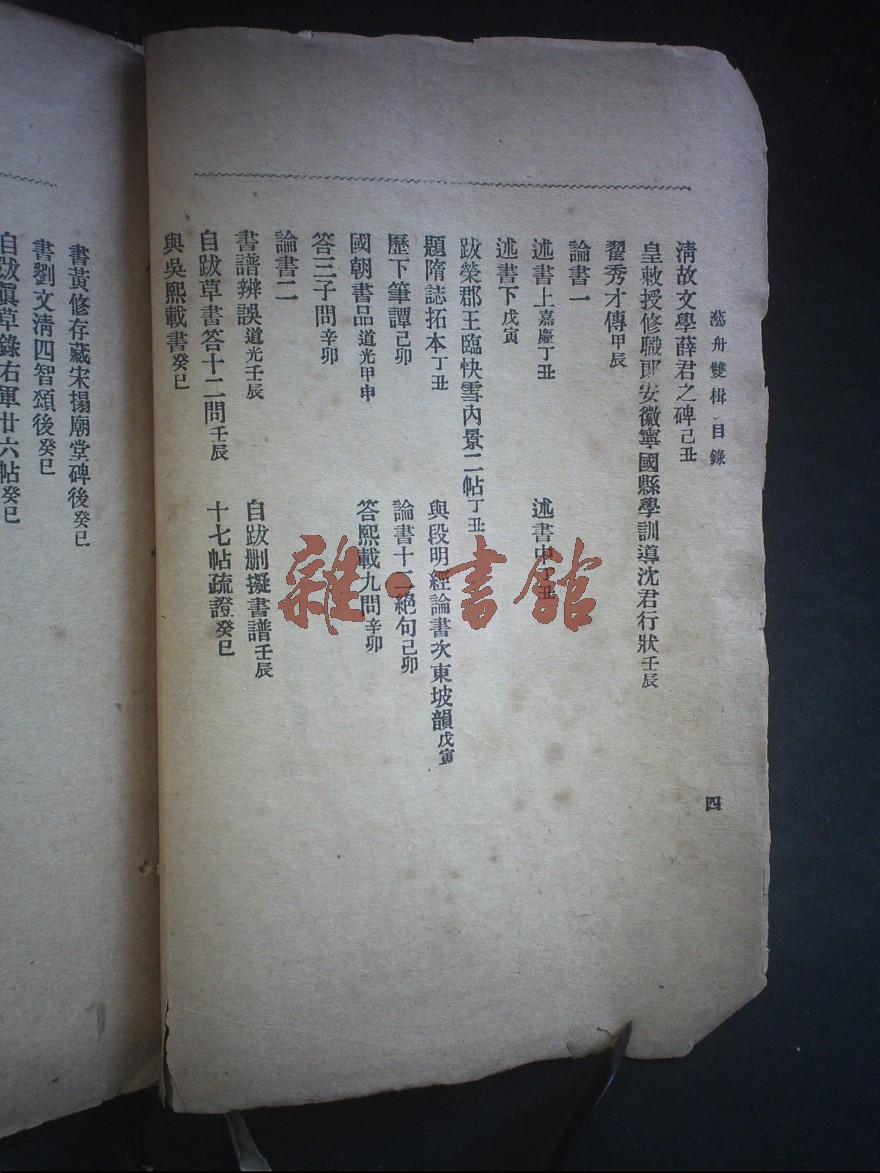 藝舟雙楫 目錄
四
清故文學薛君之碑己丑
皇敕授修職郎安徽寧國縣學訓導沈君行狀壬辰
翟秀才傳甲辰
論書一
述書上嘉慶丁丑
述書中丁丑
述書下戊寅
跋榮郡王臨快雪內景二帖丁丑
題隋誌拓本丁丑
與段明經論書次東坡韻戊寅
歷下筆譚己卯
論書十二絕句己卯
國朝書品道光甲申
答熙載九問辛卯
答三子問辛卯
論書二
書譜辨誤道光壬辰
自跋刪擬書譜壬辰
自跋草書答十二問壬辰
十七帖疏證癸巳
與吳熙載書癸巳
書黃修存藏宋搨廟堂碑後癸巳
書劉文清四智頌後癸巳
自跋眞草錄右軍廿六帖癸巳
雜·書館